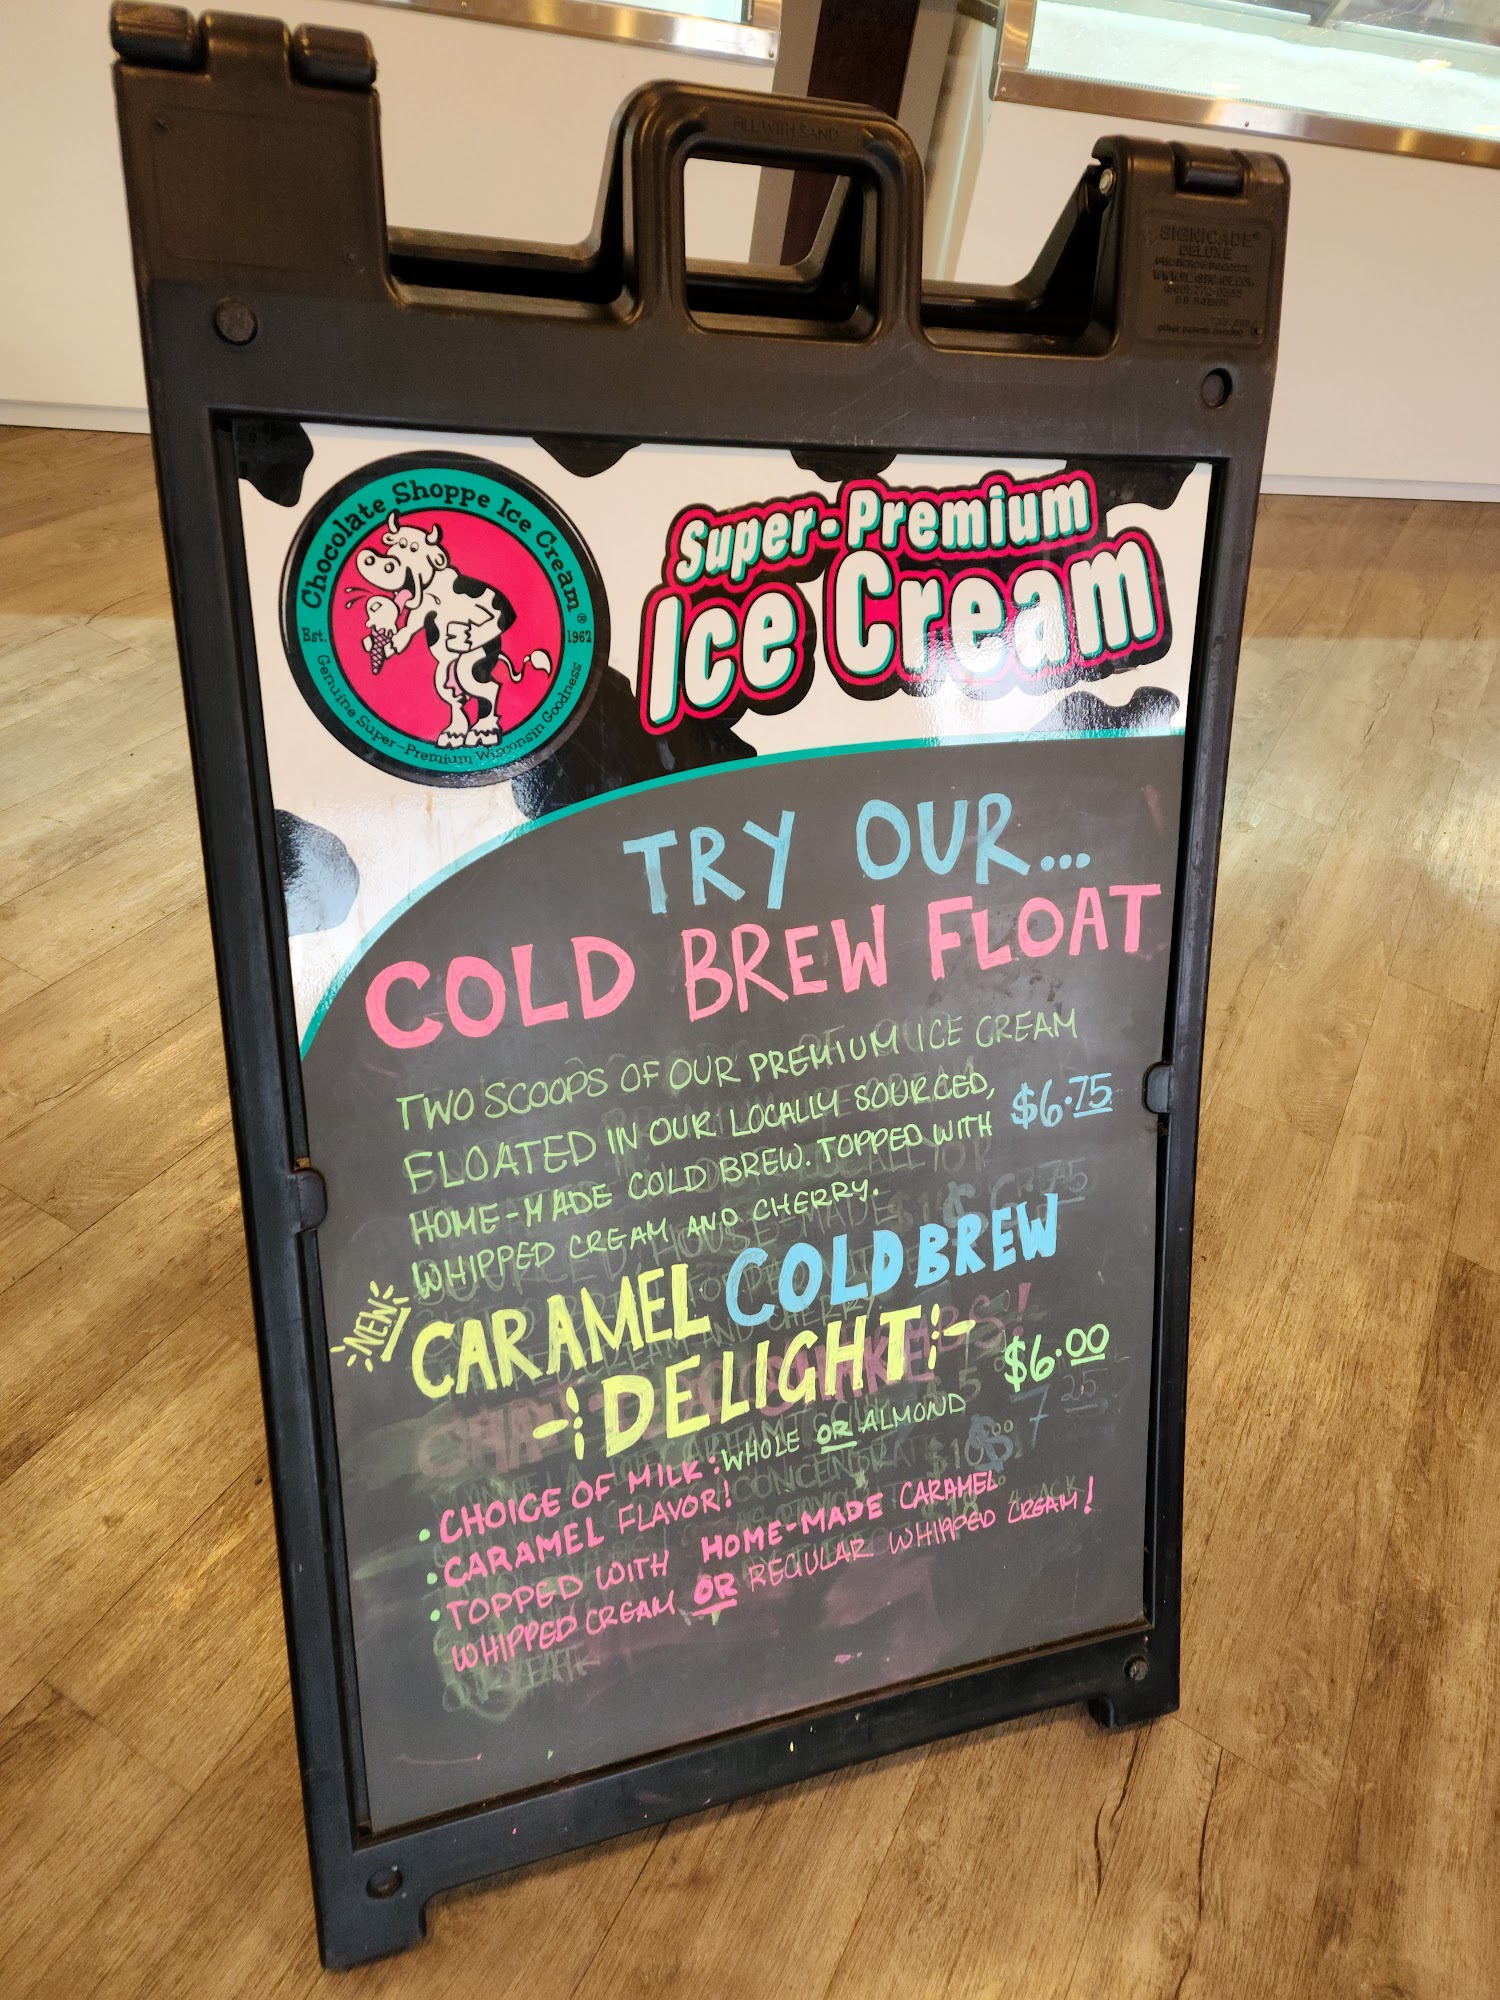 FILL WITH SAND
SIGNICADE®
DELUXE
Chocolate Shoppe Ice Cream ®
Est. 1962
Genuine Super-Premium Wisconsin Goodness
Super-Premium
Ice Cream
TRY OUR...
COLD BREW FLOAT
TWO SCOOPS OF OUR PREMIUM ICE CREAM
FLOATED IN OUR LOCALLY SOURCED,
HOME-MADE COLD BREW. TOPPED WITH
WHIPPED CREAM AND CHERRY.
$6.75
NEW
CARAMEL COLD BREW
DELIGHT
$6.00
• CHOICE OF MILK: WHOLE OR ALMOND
• CARAMEL FLAVOR!
• TOPPED WITH HOME-MADE CARAMEL
WHIPPED CREAM OR REGULAR WHIPPED CREAM!